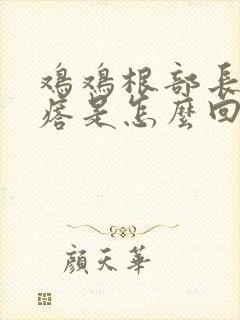 鸡鸡根部長
痞是怎麼回
顔天華